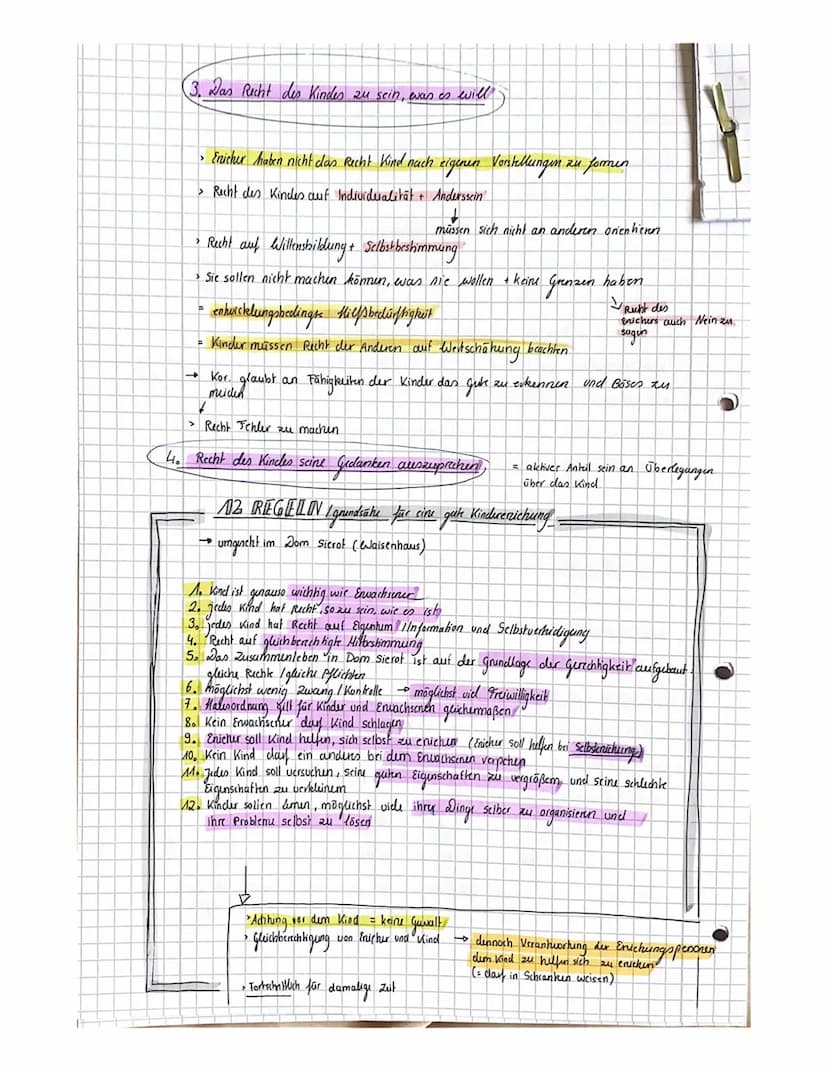 3. Das Recht des Kindes zu sein, was es will
> Erzieher haben nicht das Recht Kind nach eigenen Vorstellungen zu formen
> Recht des Kindes auf Individualität + Anderssein
müssen sich nicht an anderen orientieren
> Recht auf Willensbildung + Selbstbestimmung
> Sie sollen nicht machen können, was sie wollen + keine Grenzen haben
↘ Recht des
Erziehers auch Nein zu
sagen
= entwicklungsbedingte Hilfsbedürftigkeit
= Kinder müssen Recht der Anderen auf Wertschätzung beachten
→ Kor. glaubt an Fähigkeiten der Kinder das Gute zu erkennen und Böses zu
meiden
> Recht Fehler zu machen
4. Recht des Kindes seine Gedanken auszusprechen
= aktiver Anteil sein an Überlegungen
über das Kind
12 REGELN / grundsätze für eine gute Kindererziehung
→ umgesetzt im Dom Sierot (Waisenhaus)
1. Kind ist genauso wichtig wie Erwachsener
2. jedes Kind hat Recht, so zu sein, wie es ist
3. jedes Kind hat Recht auf Eigentum / Information und Selbstverteidigung
4. Recht auf gleichberechtigte Mitbestimmung
5. Das Zusammenleben in Dom Sierot ist auf der Grundlage der Gerechtigkeit aufgebaut
gleiche Rechte / gleiche Pflichten
6. möglichst wenig Zwang / Kontrolle → möglichst viel Freiwilligkeit
7. Hausordnung gilt für Kinder und Erwachsenen gleichermaßen
8. Kein Erwachsener darf Kind schlagen
9. Erzieher soll Kind helfen, sich selbst zu erziehen (Erzieher soll helfen bei Selbsterziehung)
10. Kein Kind darf ein anderes bei dem Erwachsenen verpetzen
11. Jedes Kind soll versuchen, seine guten Eigenschaften zu vergrößern, und seine schlechte
Eigenschaften zu verkleinern
12. Kinder sollen lernen, möglichst viele ihrer Dinge selber zu organisieren und
ihre Probleme selbst zu lösen
> Achtung vor dem Kind = keine Gewalt
> Gleichberechtigung von Erzieher und Kind → dennoch Verantwortung der Erziehungspersonen
dem Kind zu helfen sich zu erziehen
(= darf in Schranken weisen)
> Fortschrittlich für damalige Zeit